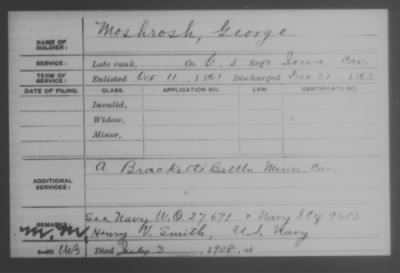 NAME OF SOLDIER: Moshrosh, George
SERVICE: Late rank, Co. G, 5 Reg't Iowa Cav.
TERM OF SERVICE: Enlisted Oct 11, 1861 Discharged Dec 31, 1863
DATE OF FILING. CLASS. APPLICATION NO. LAW. CERTIFICATE NO.
Invalid,
Widow,
Minor,
ADDITIONAL SERVICES: A Brackett's Battln Minn. Cav.
REMARKS: See Navy W.O. 27671 + Navy
Henry V. Smith, U.S. Navy
Died July 3, 1908, at